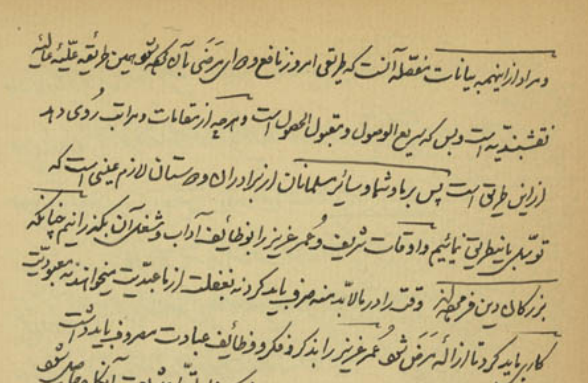 ومراد از اینهمه بیانات مفصّله آنست که طریقی امروز نافع و دوای مرضی بآن همین طریقهٔ علیّهٔ عالیهٔ
نقشبندیّه است و بس که سریع الوصول و مقبول الحصول است و هرچه از مقامات و مراتب رُوی دهد
ازین طریق است پس بر ما و شما و سائر مسلمانان از برادران و دوستان لازم عینی است که
توسّل باینطریق نمائیم و اوقات شریف و عُمر عزیز را بوظائف آداب و شغل آن بگذرانیم چنانکه
بزرگان دین فرموده‌اند وقت را در مالابدّ منه صرف باید کرد نه بغفلت از ما عبدیّت میخواهند نه معبودیّت
کار باید کرد تا ازالهٔ مَرَض شود عُمر عزیز را بذکر و فکر و وظائف عبادت مصروف باید داشت